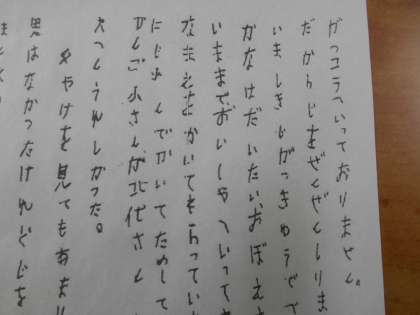 がっこうへいっておりません。
だからじをぜんぜんしりま
いましきじがっきゅうで
かなはだいたいおぼえ
いままでおいしゃへいって
なまえをかいてもらってい
にじぶんでかいてためして
かんごふさんが北代さん
大へんうれしかった。
夕やけを見てもあまり
思はなかったけれどじを